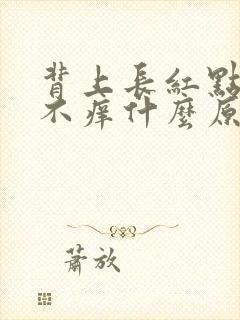 背上長紅點
不痒什麼原
蕭放